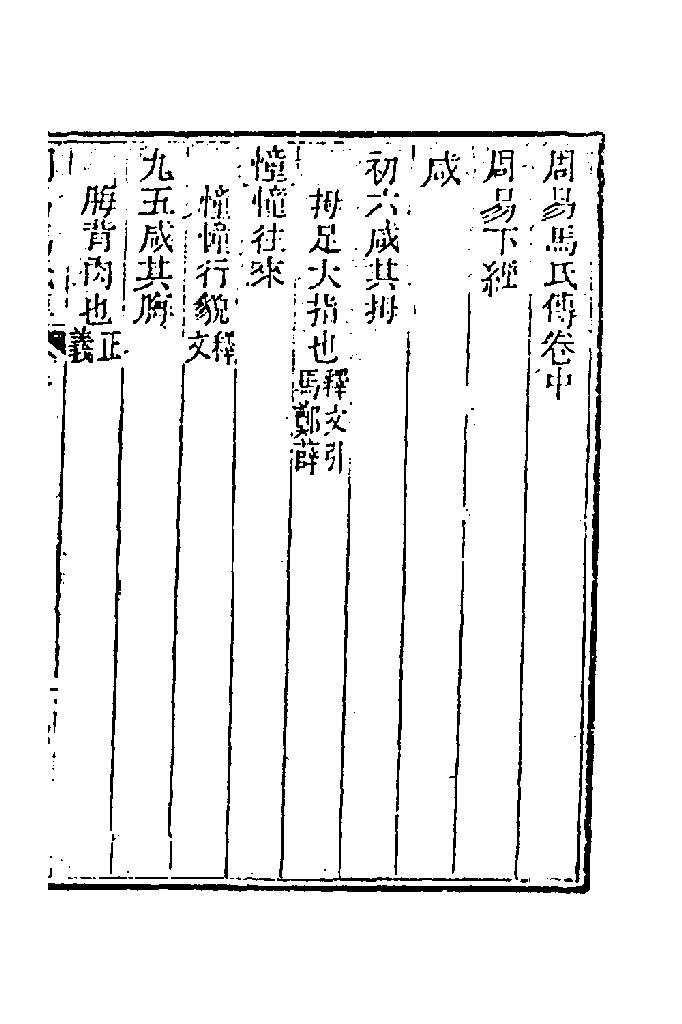 周易馬氏傳卷中
周易下經
咸
初六咸其拇
拇足大指也釋文引馬鄭薛
憧憧往來
憧憧行貌釋文
九五咸其脢
脢背肉也正義